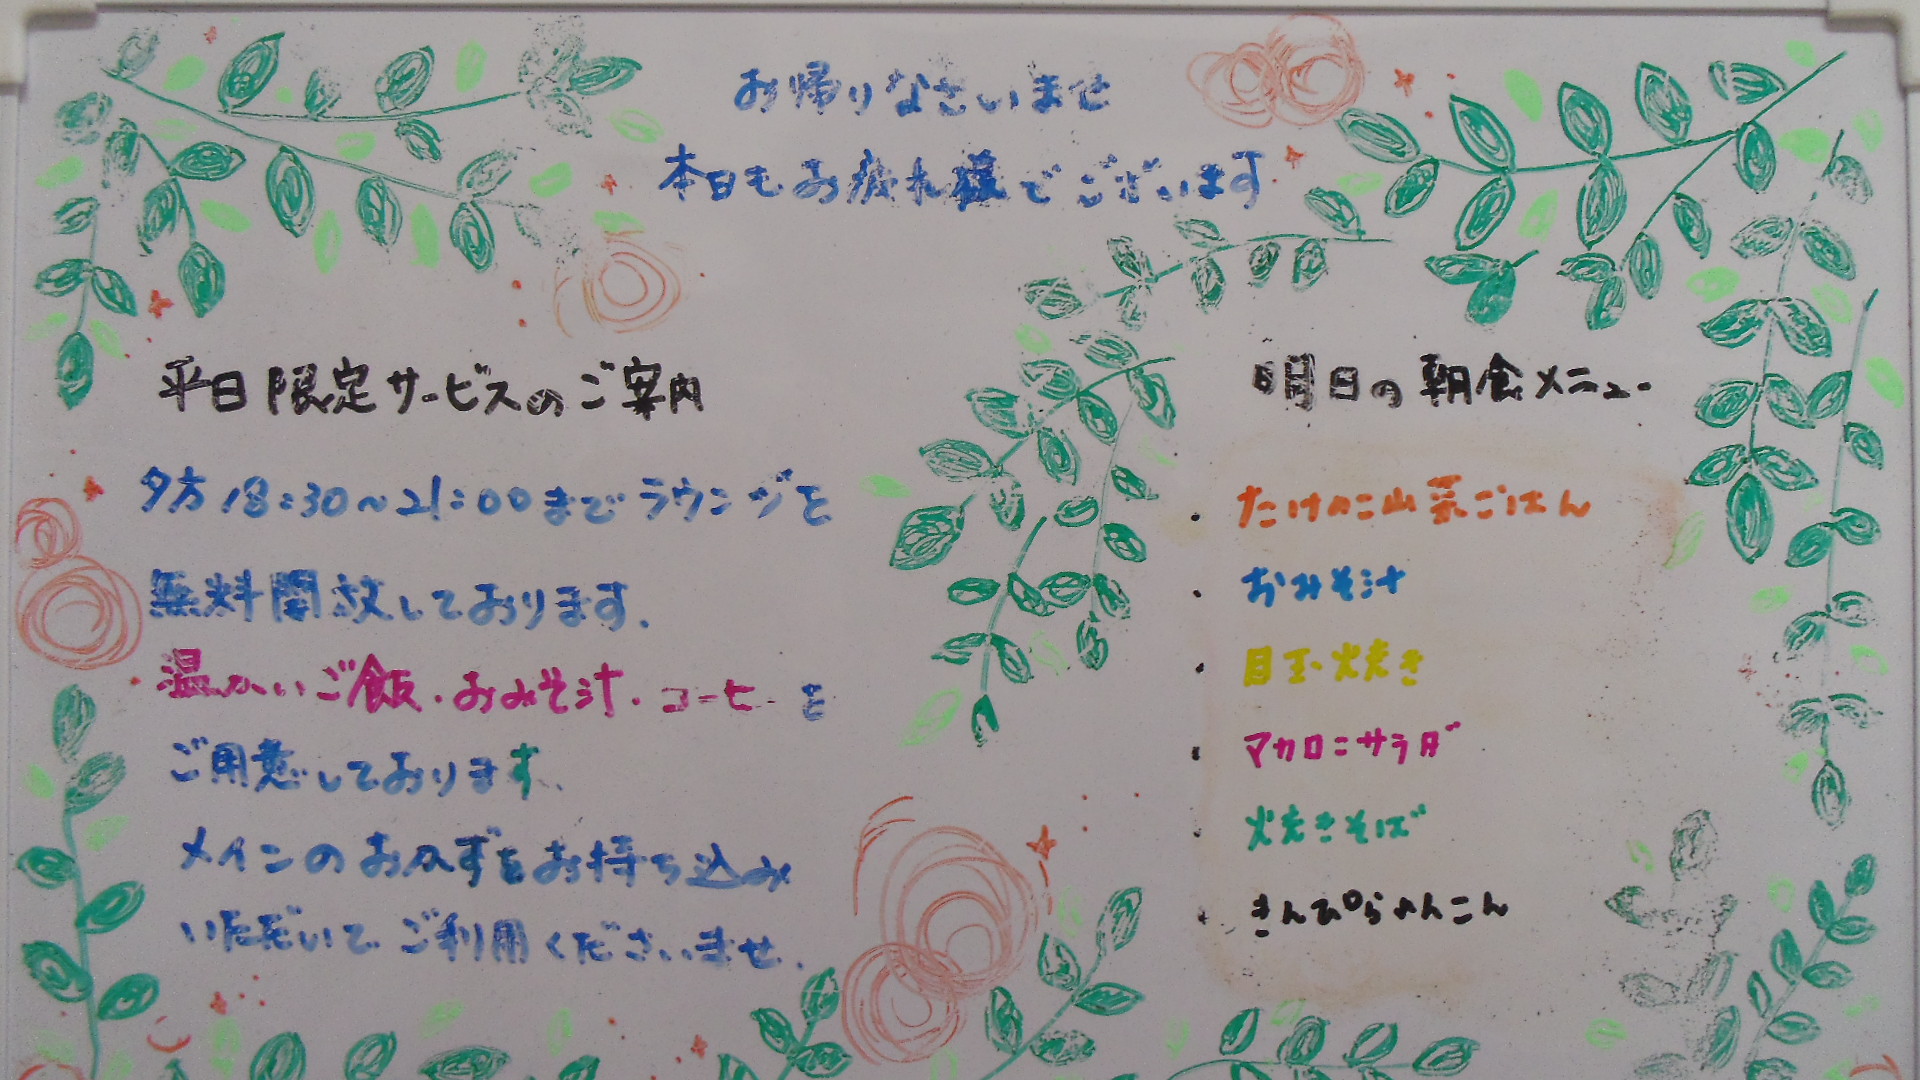 お帰りなさいませ
本日もお疲れ様でございます
平日限定サービスのご案内
夕方18:30～21:00までラウンジを
無料開放しております.
温かいご飯・おみそ汁・コーヒーを
ご用意しております.
メインのおかずをお持ち込み
いただいてご利用くださいませ.
明日の朝食メニュー
・たけのこ山菜ごはん
・おみそ汁
・目玉焼き
・マカロニサラダ
・焼きそば
・きんぴられんこん